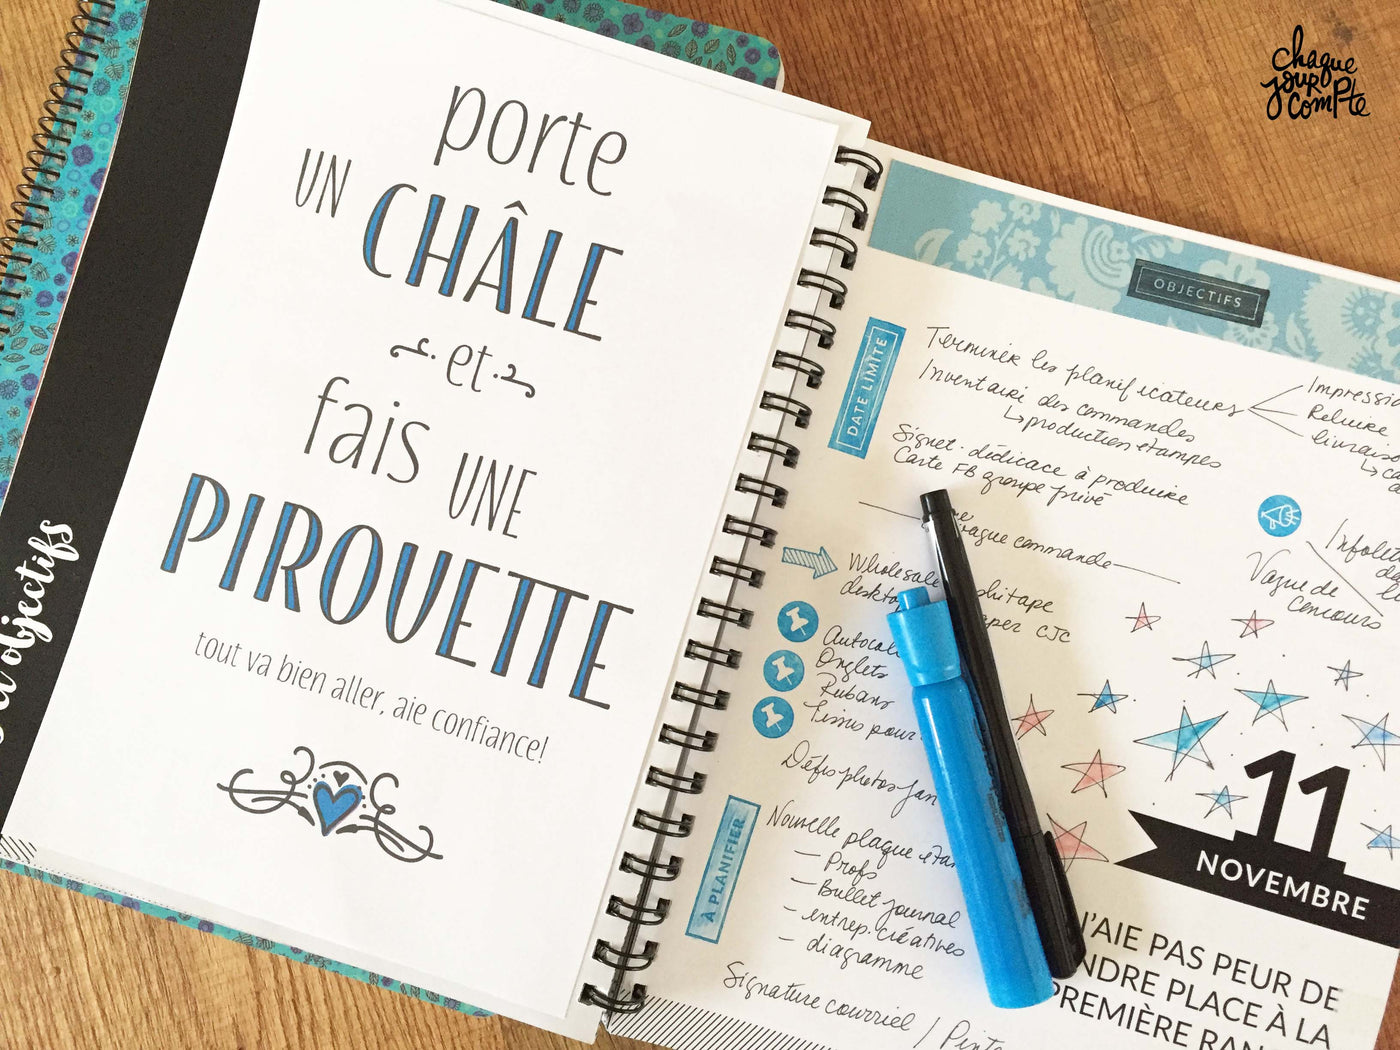 chaque
jour
compte
porte
UN CHÂLE
et
fais UNE
PIROUETTE
tout va bien aller, aie confiance!
et objectifs
OBJECTIFS
DATE LIMITE
Terminer les planificateurs
Impressio
Reliure
livraiso
Inventaire des commandes
production étampes
Signet dédicace à produire
Carte FB groupe privé
vague commande
Infolet
Vague de
concours
Wholesale
deskto
phitape
aper CJC
Autocol
Onglets
Rubans
Tissus pour
Défis photos Jan
À PLANIFIER
Nouvelle plaque étam
- Profs
- Bullet journal
- entrep. créatives
- diagramme
Signature courriel /
11
NOVEMBRE
N'AIE PAS PEUR DE
NDRE PLACE À LA
PREMIÈRE RAN